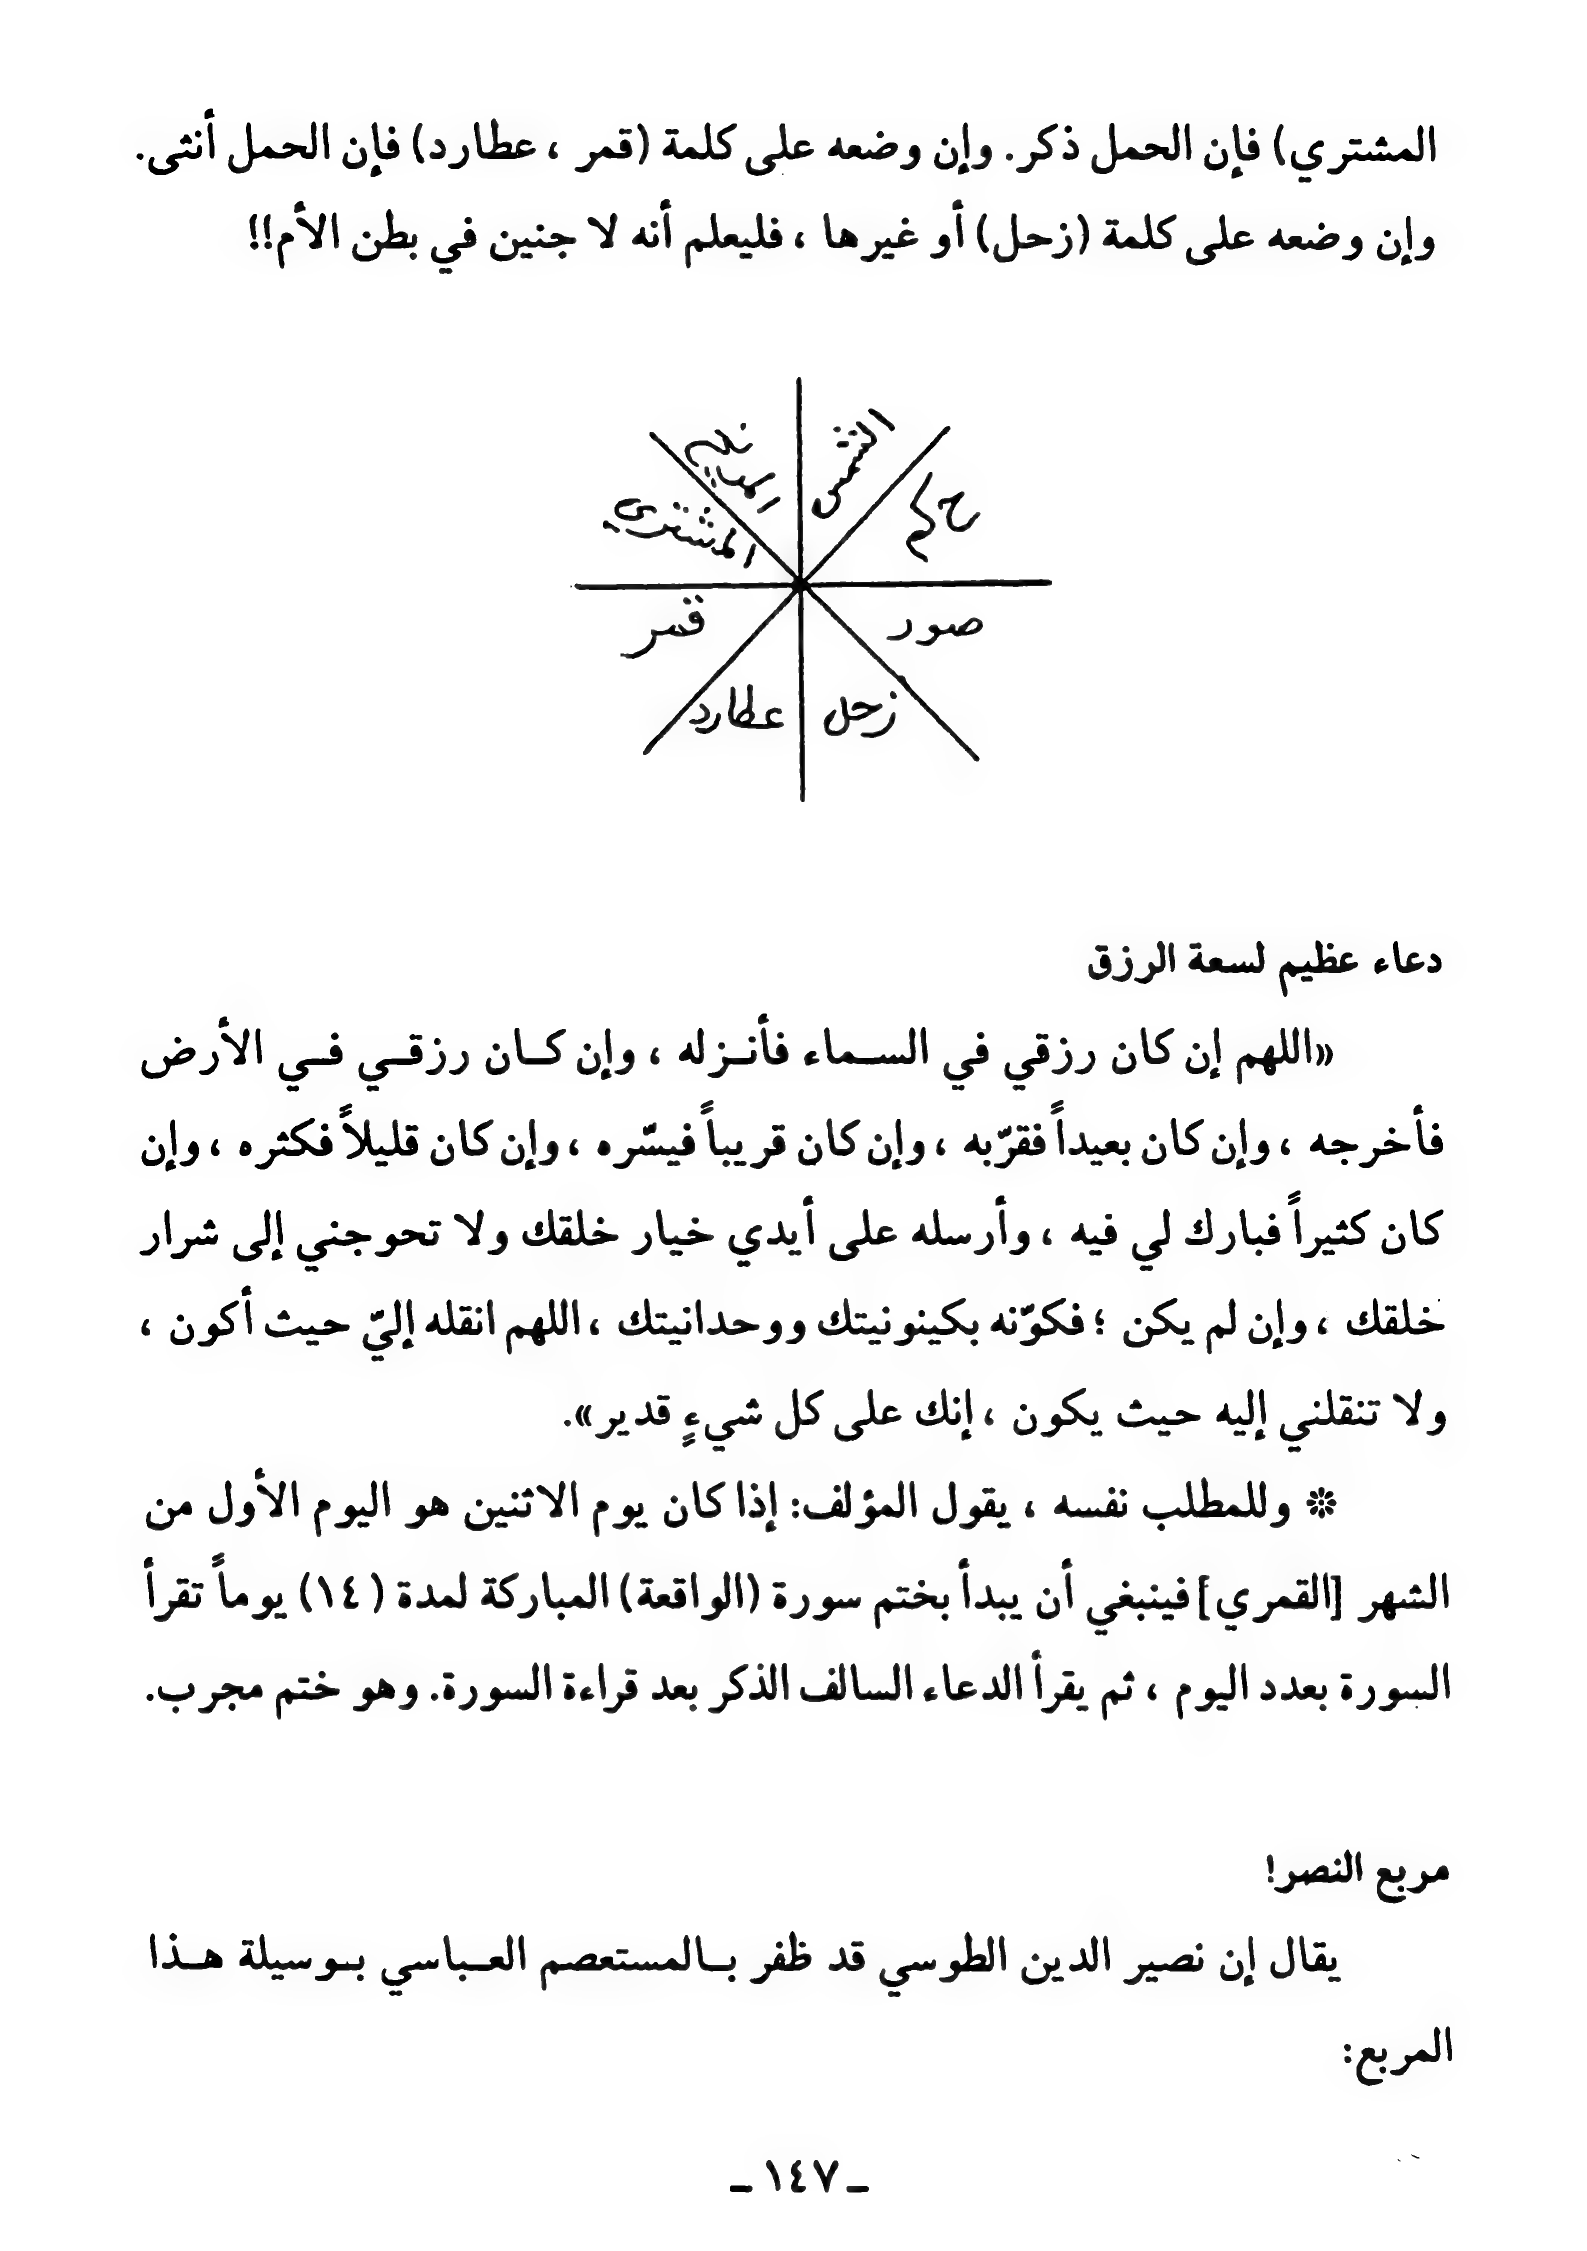 المشتري) فإن الحمل ذكر. وإن وضعه على كلمة (قمر ، عطارد) فإن الحمل أنثى.
وإن وضعه على كلمة (زحل) أو غيرها ، فليعلم أنه لا جنين في بطن الأم!!
الشمس
المريخ
المشتري
قمر
صور
عطارد
زحل
دعاء عظيم لسعة الرزق
«اللهم إن كان رزقي في الســماء فأنــزله ، وإن كــان رزقــي فــي الأرض
فأخرجه ، وإن كان بعيداً فقرّبه ، وإن كان قريباً فيسّره ، وإن كان قليلاً فكثره ، وإن
كان كثيراً فبارك لي فيه ، وأرسله على أيدي خيار خلقك ولا تحوجني إلى شرار
خلقك ، وإن لم يكن ؛ فكوّنه بكينونيتك ووحدانيتك ، اللهم انقله إليّ حيث أكون ،
ولا تنقلني إليه حيث يكون ، إنك على كل شيءٍ قدير».
❊ وللمطلب نفسه ، يقول المؤلف: إذا كان يوم الاثنين هو اليوم الأول من
الشهر [القمري] فينبغي أن يبدأ بختم سورة (الواقعة) المباركة لمدة (١٤) يوماً تقرأ
السورة بعدد اليوم ، ثم يقرأ الدعاء السالف الذكر بعد قراءة السورة. وهو ختم مجرب.
مربع النصر!
يقال إن نصير الدين الطوسي قد ظفر بــالمستعصم العــباسي بــوسيلة هــذا
المربع:
ـ ١٤٧ ـ